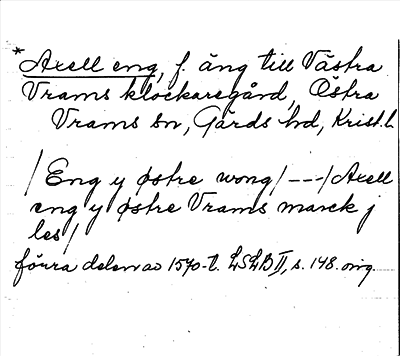 * Axell eng, f. äng till Västra
Vrams klockaregård, Östra
Vrams sn, Gärds hd, Krist. l.
/ Eng y østre wong / --- / Axell
eng y østre Vrams marck j
les /
förra delen av 1570-t. LSLB II, s. 148. orig.